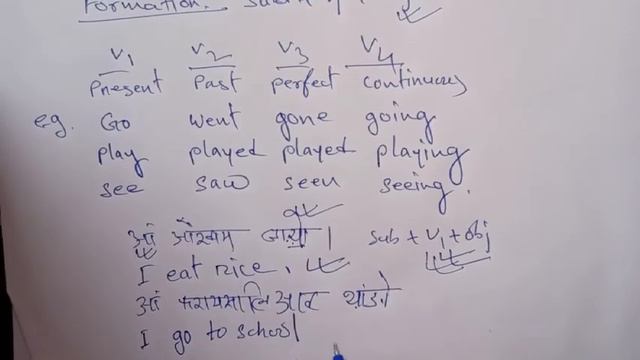 Formation.
V1 V2 V3 V4
Present Past perfect continuous
eg. Go went gone going
play played played playing
see saw seen seeing.
आं जायो। sub + V1 + obj
I eat rice.
आं थांङो
I go to school